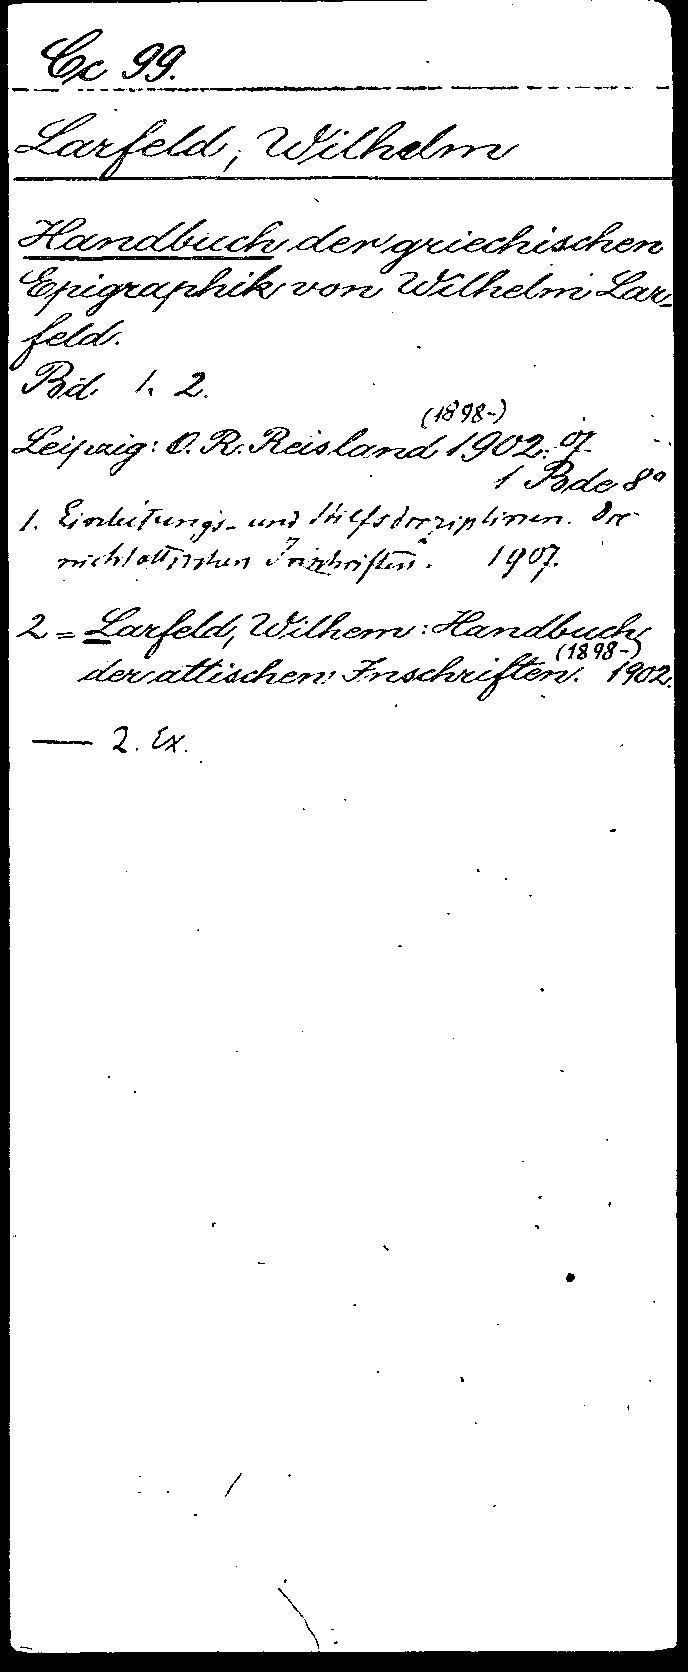 Cc 99.
Larfeld, Wilhelm
Handbuch der griechischen
Epigraphik von Wilhelm Lar-
feld.
Bd. 1. 2.
(1898-)
Leipzig: O. R. Reisland 1902. 07
1 Bde 8°
1. Einleitungs- und Hilfsdisziplinen. Die
nichtattischen Inschriften. 1907.
2 = Larfeld, Wilhem: Handbuch
der attischen Inschriften. (1898-) 1902.
— 2. Ex.